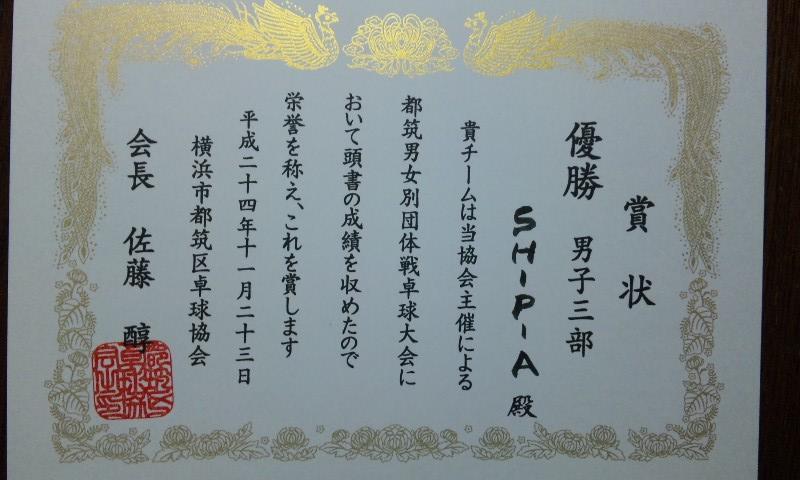 賞状
優勝 男子三部
SHIPIA 殿
貴チームは当協会主催による
都筑男女別団体戦卓球大会に
おいて頭書の成績を収めたので
栄誉を称え、これを賞します
平成二十四年十一月二十三日
横浜市都筑区卓球協会
会長 佐藤 醇